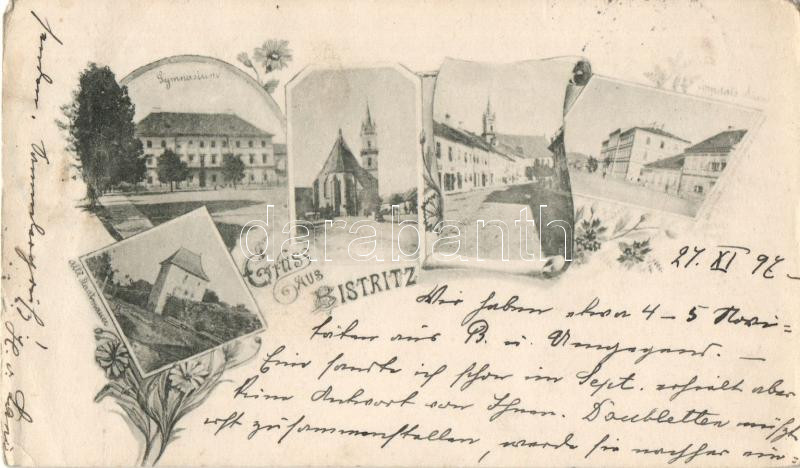 Gymnasium
Gruss
AUS
BISTRITZ
darabanth
27. XI 97.
Wir haben etwa 4 – 5 Novi=
täten aus B. u. Umgegend. –
Eine sandte ich schon im Sept. erhielt aber
keine Antwort von Ihnen. Doubletten müsste
erst zusammenstellen, werde sie nachher ein=